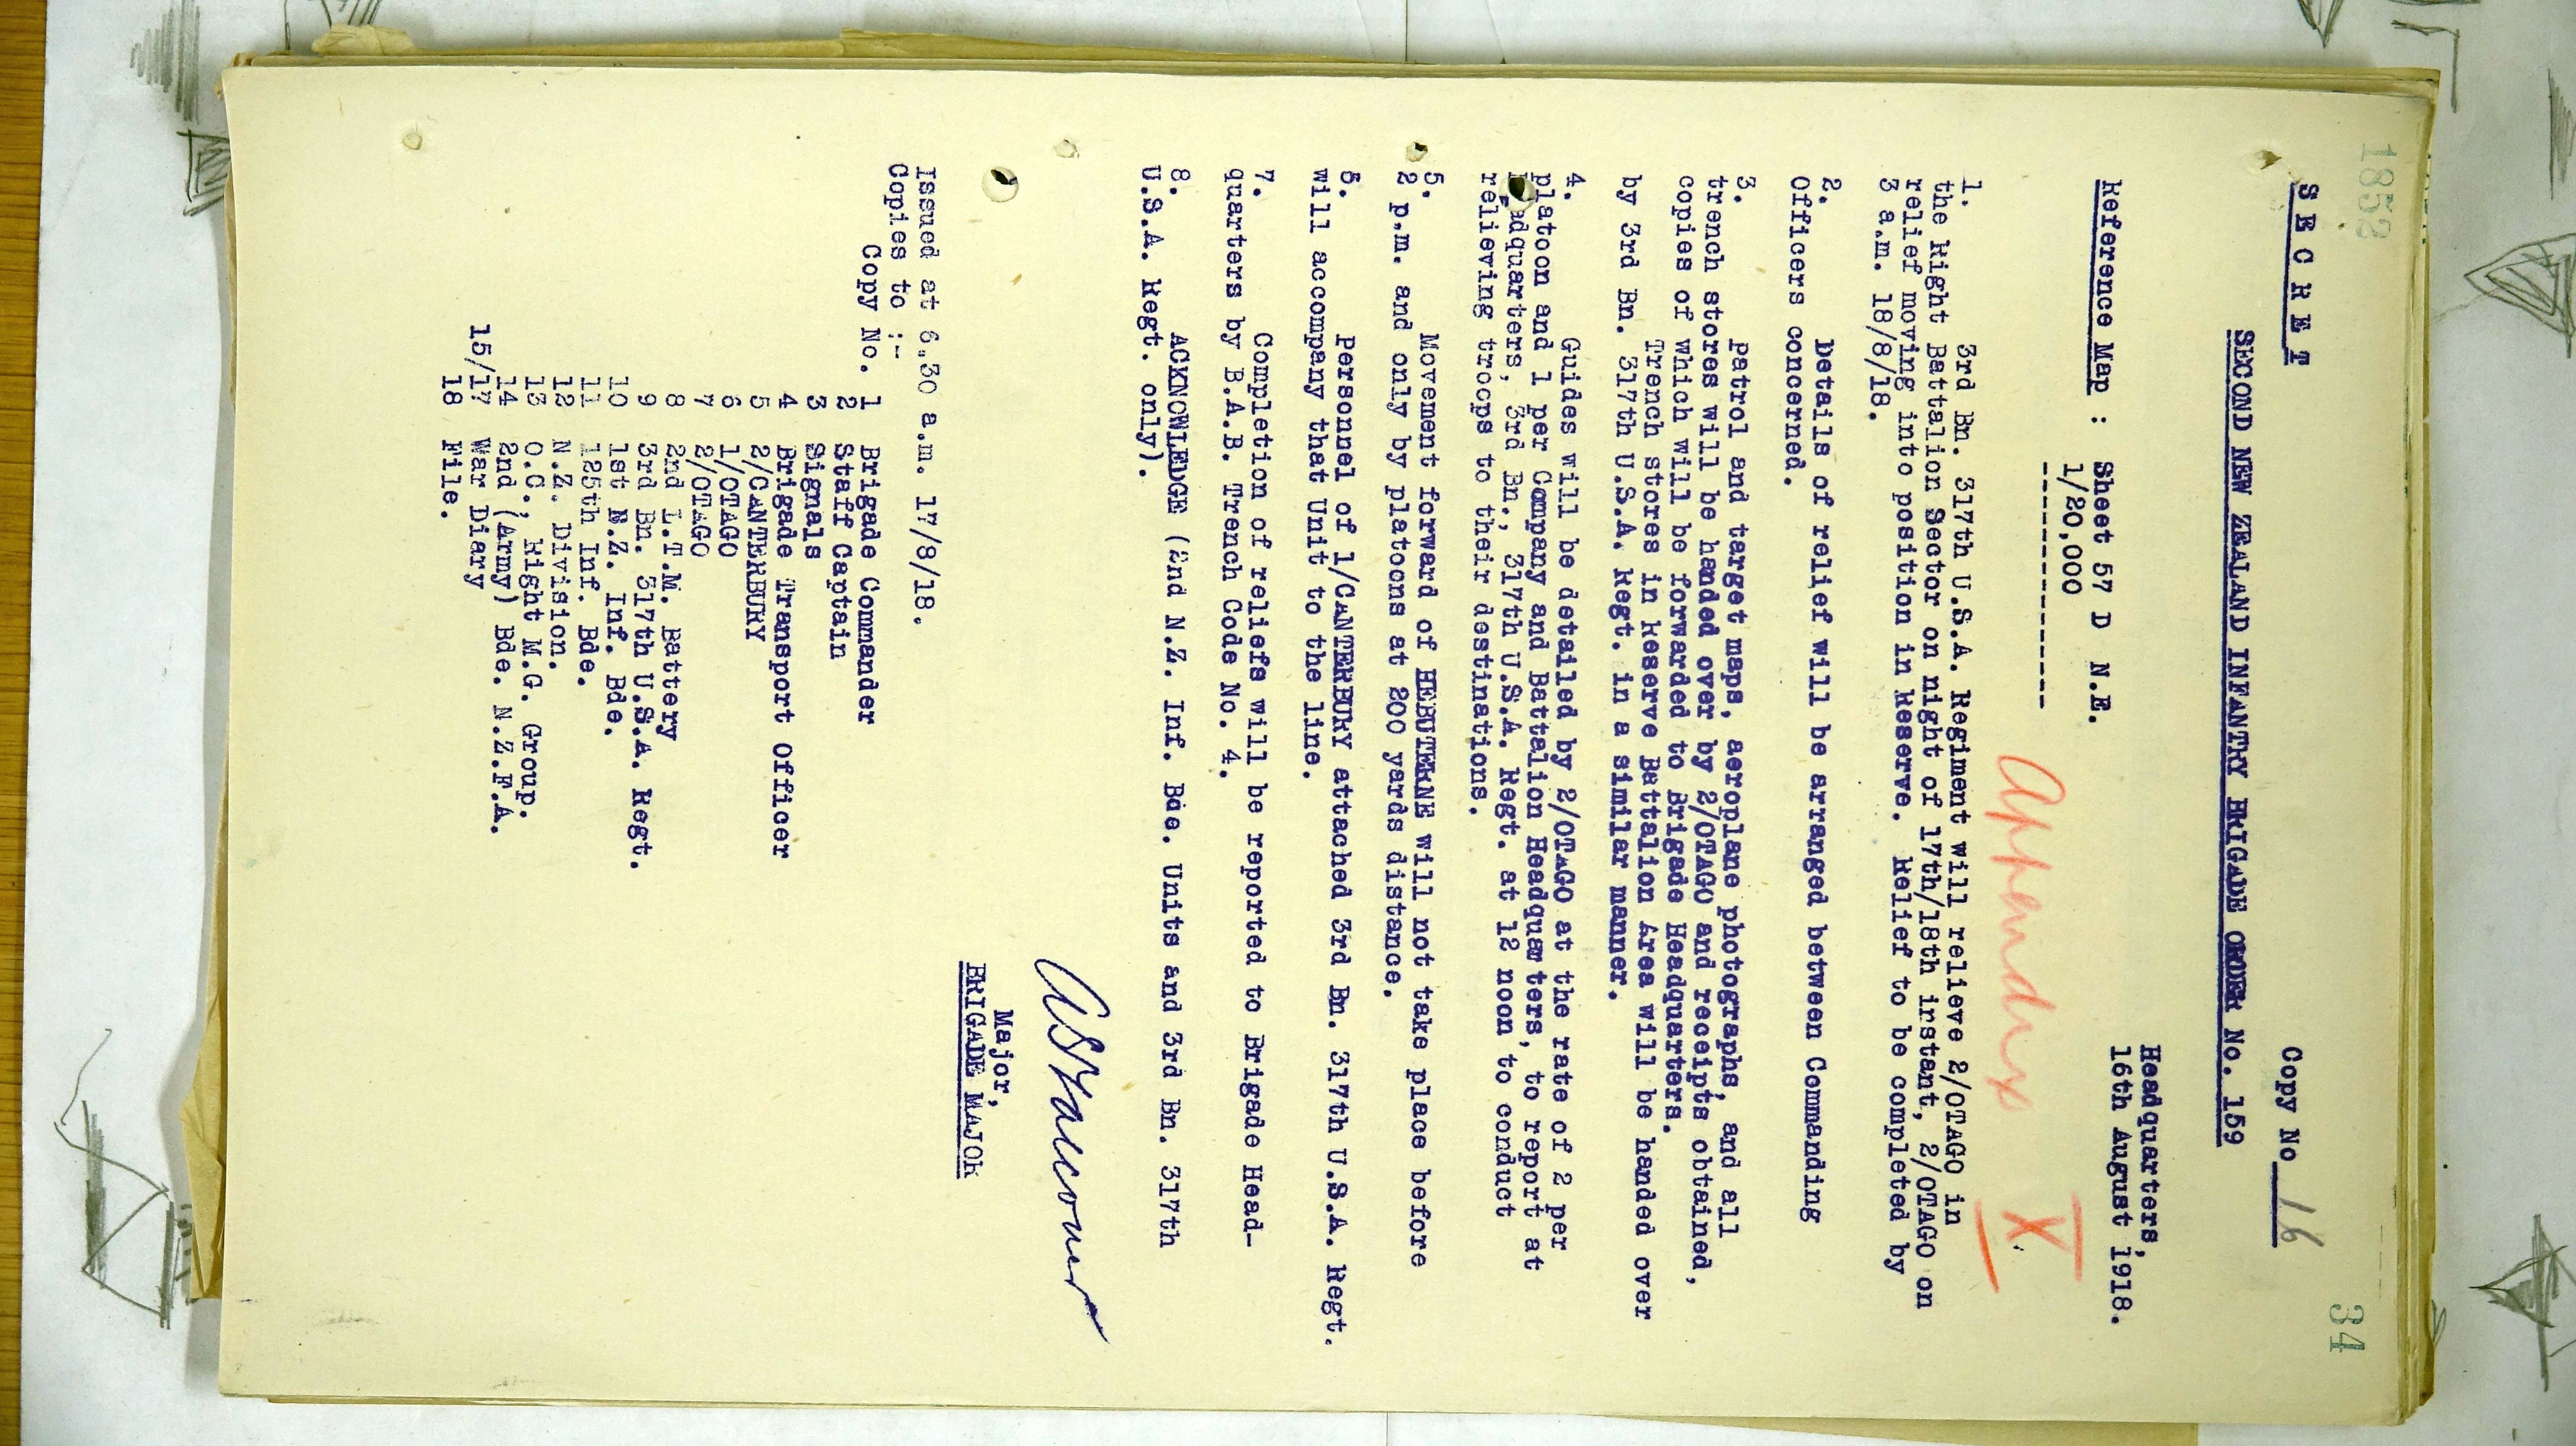 1852
34
SECRET
Copy No 16
SECOND NEW ZEALAND INFANTRY BRIGADE ORDER No. 159
Headquarters,
16th August 1918.
Reference Map : Sheet 57 D N.E.
1/20,000
--------------
Appendix X
1. 3rd Bn. 317th U.S.A. Regiment will relieve 2/OTAGO in
the Right Battalion Sector on night of 17th/18th irstant, 2/OTAGO on
relief moving into position in Reserve. Relief to be completed by
3 a.m. 18/8/18.
2. Details of relief will be arranged between Commanding
Officers concerned.
3. Patrol and target maps, aeroplane photographs, and all
trench stores will be handed over by 2/OTAGO and receipts obtained,
copies of which will be forwarded to Brigade Headquarters.
Trench stores in Reserve Battalion Area will be handed over
by 3rd Bn. 317th U.S.A. Regt. in a similar manner.
4. Guides will be detailed by 2/OTAGO at the rate of 2 per
platoon and 1 per Company and Battalion Headquarters, to report at
adquarters, 3rd Bn., 317th U.S.A. Regt. at 12 noon to conduct
relieving troops to their destinations.
5. Movement forward of HEBUTERNE will not take place before
2 p.m. and only by platoons at 200 yards distance.
Personnel of 1/CANTERBURY attached 3rd Bn. 317th U.S.A. Regt.
will accompany that Unit to the line.
7. Completion of reliefs will be reported to Brigade Head-
quarters by B.A.B. Trench Code No. 4.
8. ACKNOWLEDGE (2nd N.Z. Inf. Bde. Units and 3rd Bn. 317th
U.S.A. Regt. only).
Major,
BRIGADE MAJOR
Issued at 6.30 a.m. 17/8/18.
Copies to :-
Copy No. 1 Brigade Commander
2 Staff Captain
3 Signals
4 Brigade Transport Officer
5 2/CANTERBURY
6 1/OTAGO
7 2/OTAGO
8 2nd L.T.M. Battery
9 3rd Bn. 317th U.S.A. Regt.
10 1st N.Z. Inf. Bde.
11 125th Inf. Bde.
12 N.Z. Division.
13 O.C., Right M.G. Group.
14 2nd (Army) Bde. N.Z.F.A.
15/17 War Diary
18 File.